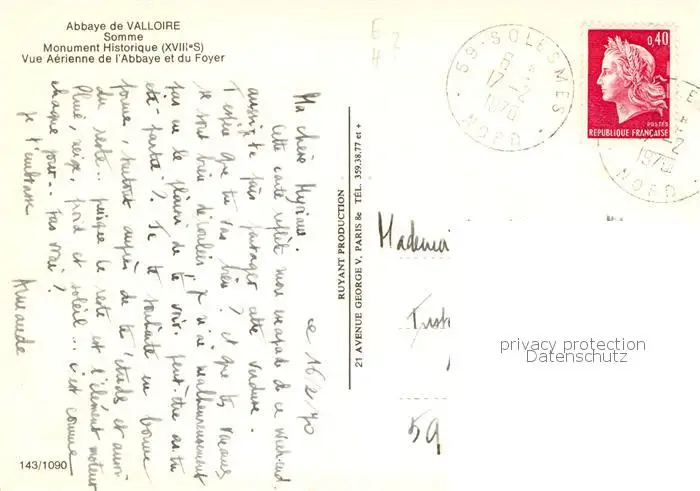 Abbaye de VALLOIRE
Somme
Monument Historique (XVIIIᵉS)
Vue Aérienne de l'Abbaye et du Foyer
ce 16/2/70
Ma chère Myriam.
Cette carte reflète mon escapade de ce Week-end.
aussi, te fais partager cette verdure.
J'espère que tu vas bien ? et que tes vacances
se sont bien déroulées. Je n'ai malheureusement
pas eu le plaisir de te voir. peut-être as-tu
été partie ?. Je te souhaite en bonne
forme, surtout auprès de tes études et aussi
du reste.. puisque le reste est l'élément moteur
Pluie, neige, froid et soleil... c'est comme
chaque jour.. pas vrai ?.
je t'embrasse
Armande
143/1090
RUYANT PRODUCTION
21 AVENUE GEORGE V, PARIS 8e TÉL. 359.38.77 et +
59-SOLESMES
17-2
1970
NORD
0,40
POSTES
REPUBLIQUE FRANÇAISE
1970
NORD
Mademoi
59
privacy protection
Datenschutz